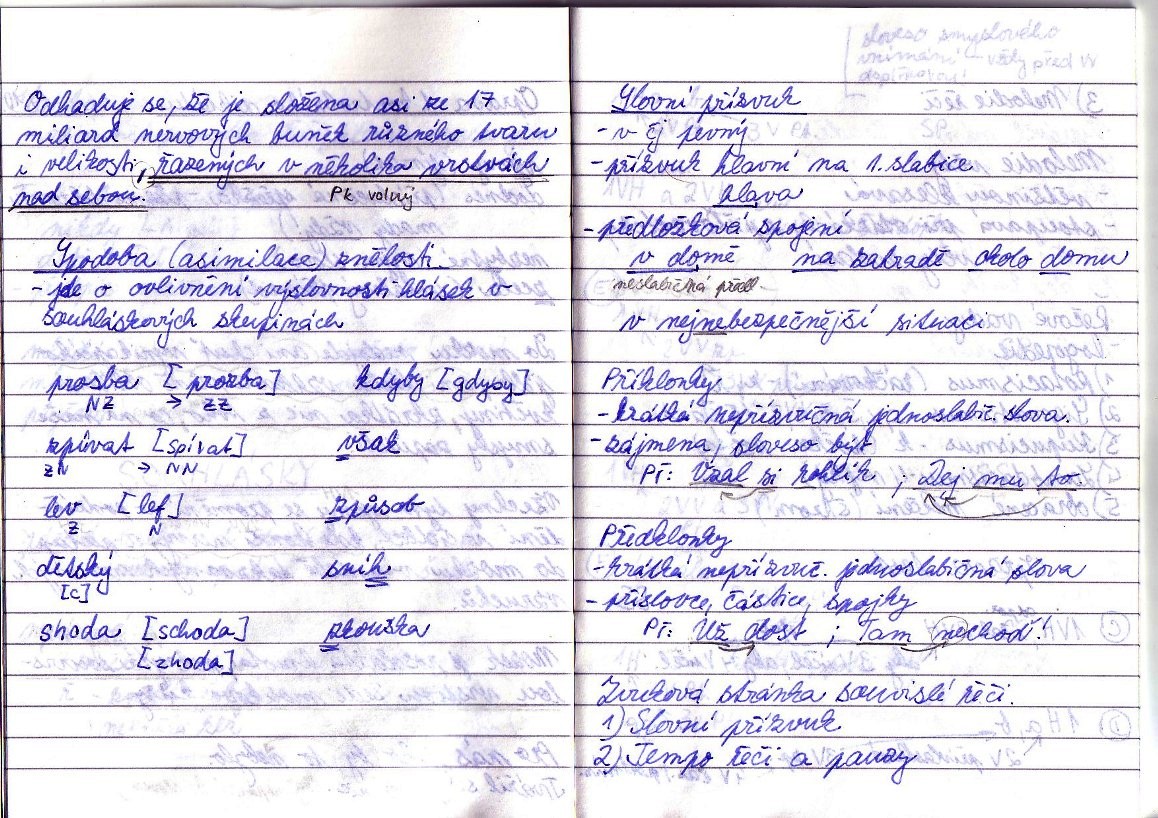 Odhaduje se, že je složena asi ze 17
miliard nervových buněk různého tvaru
i velikosti, řazených v několika vrstvách
nad sebou.
Pk volný
Spodoba (asimilace) znělosti.
- jde o ovlivnění výslovnosti hlásek v
souhláskových skupinách
prosba [prozba] kdyby [gdyby]
NZ → ZZ
zpívat [spívat] však
ZN → NN
lev [lef] způsob
Z N
dětský sníh
[c]
shoda [schoda] zkouška
[zhoda]
sloveso smyslového
vnímání – vždy před VV
doplňkovou
Slovní přízvuk
- v čj pevný
- přízvuk hlavní na 1. slabice
hlava
- předložková spojení
v domě na zahradě okolo domu
neslabičná předl.
v nejnebezpečnější situaci
Příklonky
- krátká nepřízvučná jednoslabič. slova.
- zájmena, sloveso být
Př: Vzal si rohlík ; Dej mu to.
Předklonky
- krátká nepřízvuč. jednoslabičná slova
- příslovce, částice, spojky
Př: Už dost ; Tam nechoď!
Zvuková stránka souvislé řeči.
1) Slovní přízvuk
2) Tempo řeči a pauzy